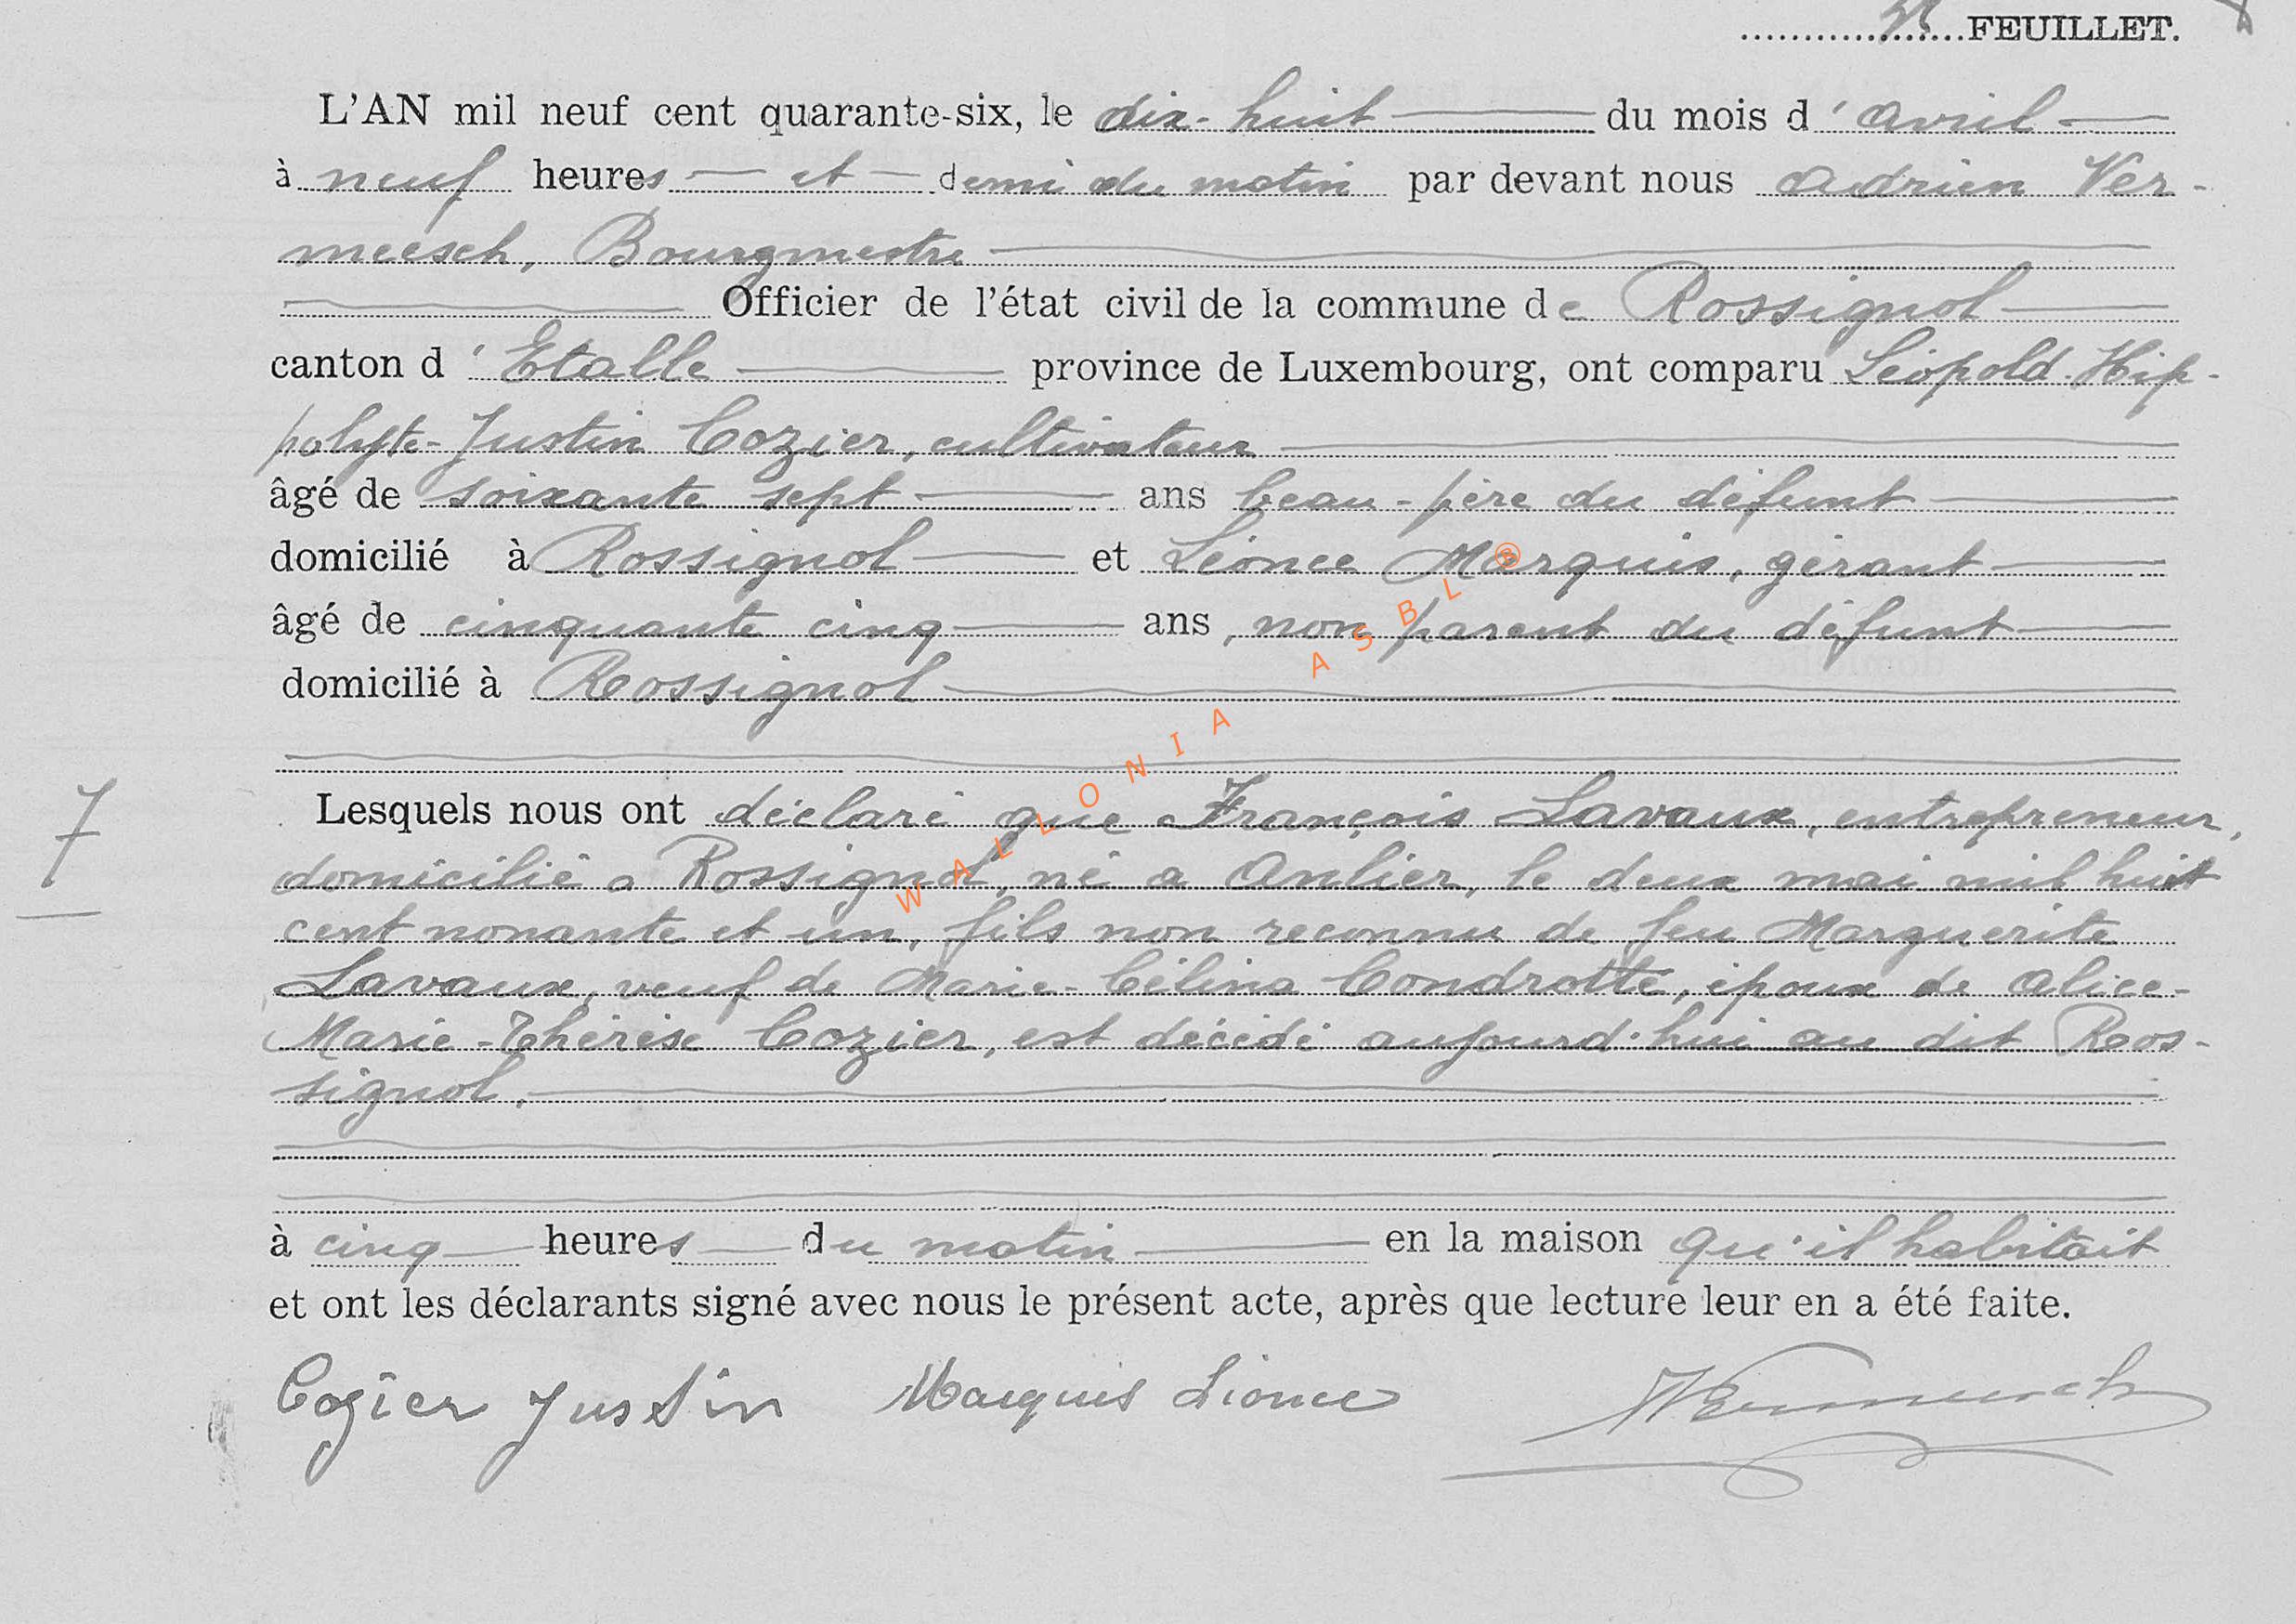 FEUILLET.
L'AN mil neuf cent quarante-six, le dix-huit du mois d'avril
à neuf heures et demi du matin par devant nous Adrien Ver-
meesch, Bourgmestre
Officier de l'état civil de la commune de Rossignol
canton d'Etalle province de Luxembourg, ont comparu Léopold-Hip-
polyte-Justin Cozier, cultivateur
âgé de soixante sept ans beau-père du défunt
domicilié à Rossignol et Léonce Marquis, gérant
âgé de cinquante cinq ans, non parent du défunt
domicilié à Rossignol
WALLONIA ASBL®
7
Lesquels nous ont déclaré que François Lavaux, entrepreneur,
domicilié a Rossignol, né a Anlier, le deux mai mil huit
cent nonante et un, fils non reconnu de feu Marguerite
Lavaux, veuf de Marie-Célina Condrotte, époux de Alice-
Marie-Thérèse Cozier, est décédé aujourd'hui au dit Ros-
signol.
à cinq heures du matin en la maison qu'il habitait
et ont les déclarants signé avec nous le présent acte, après que lecture leur en a été faite.
Cozier Justin Marquis Léonce